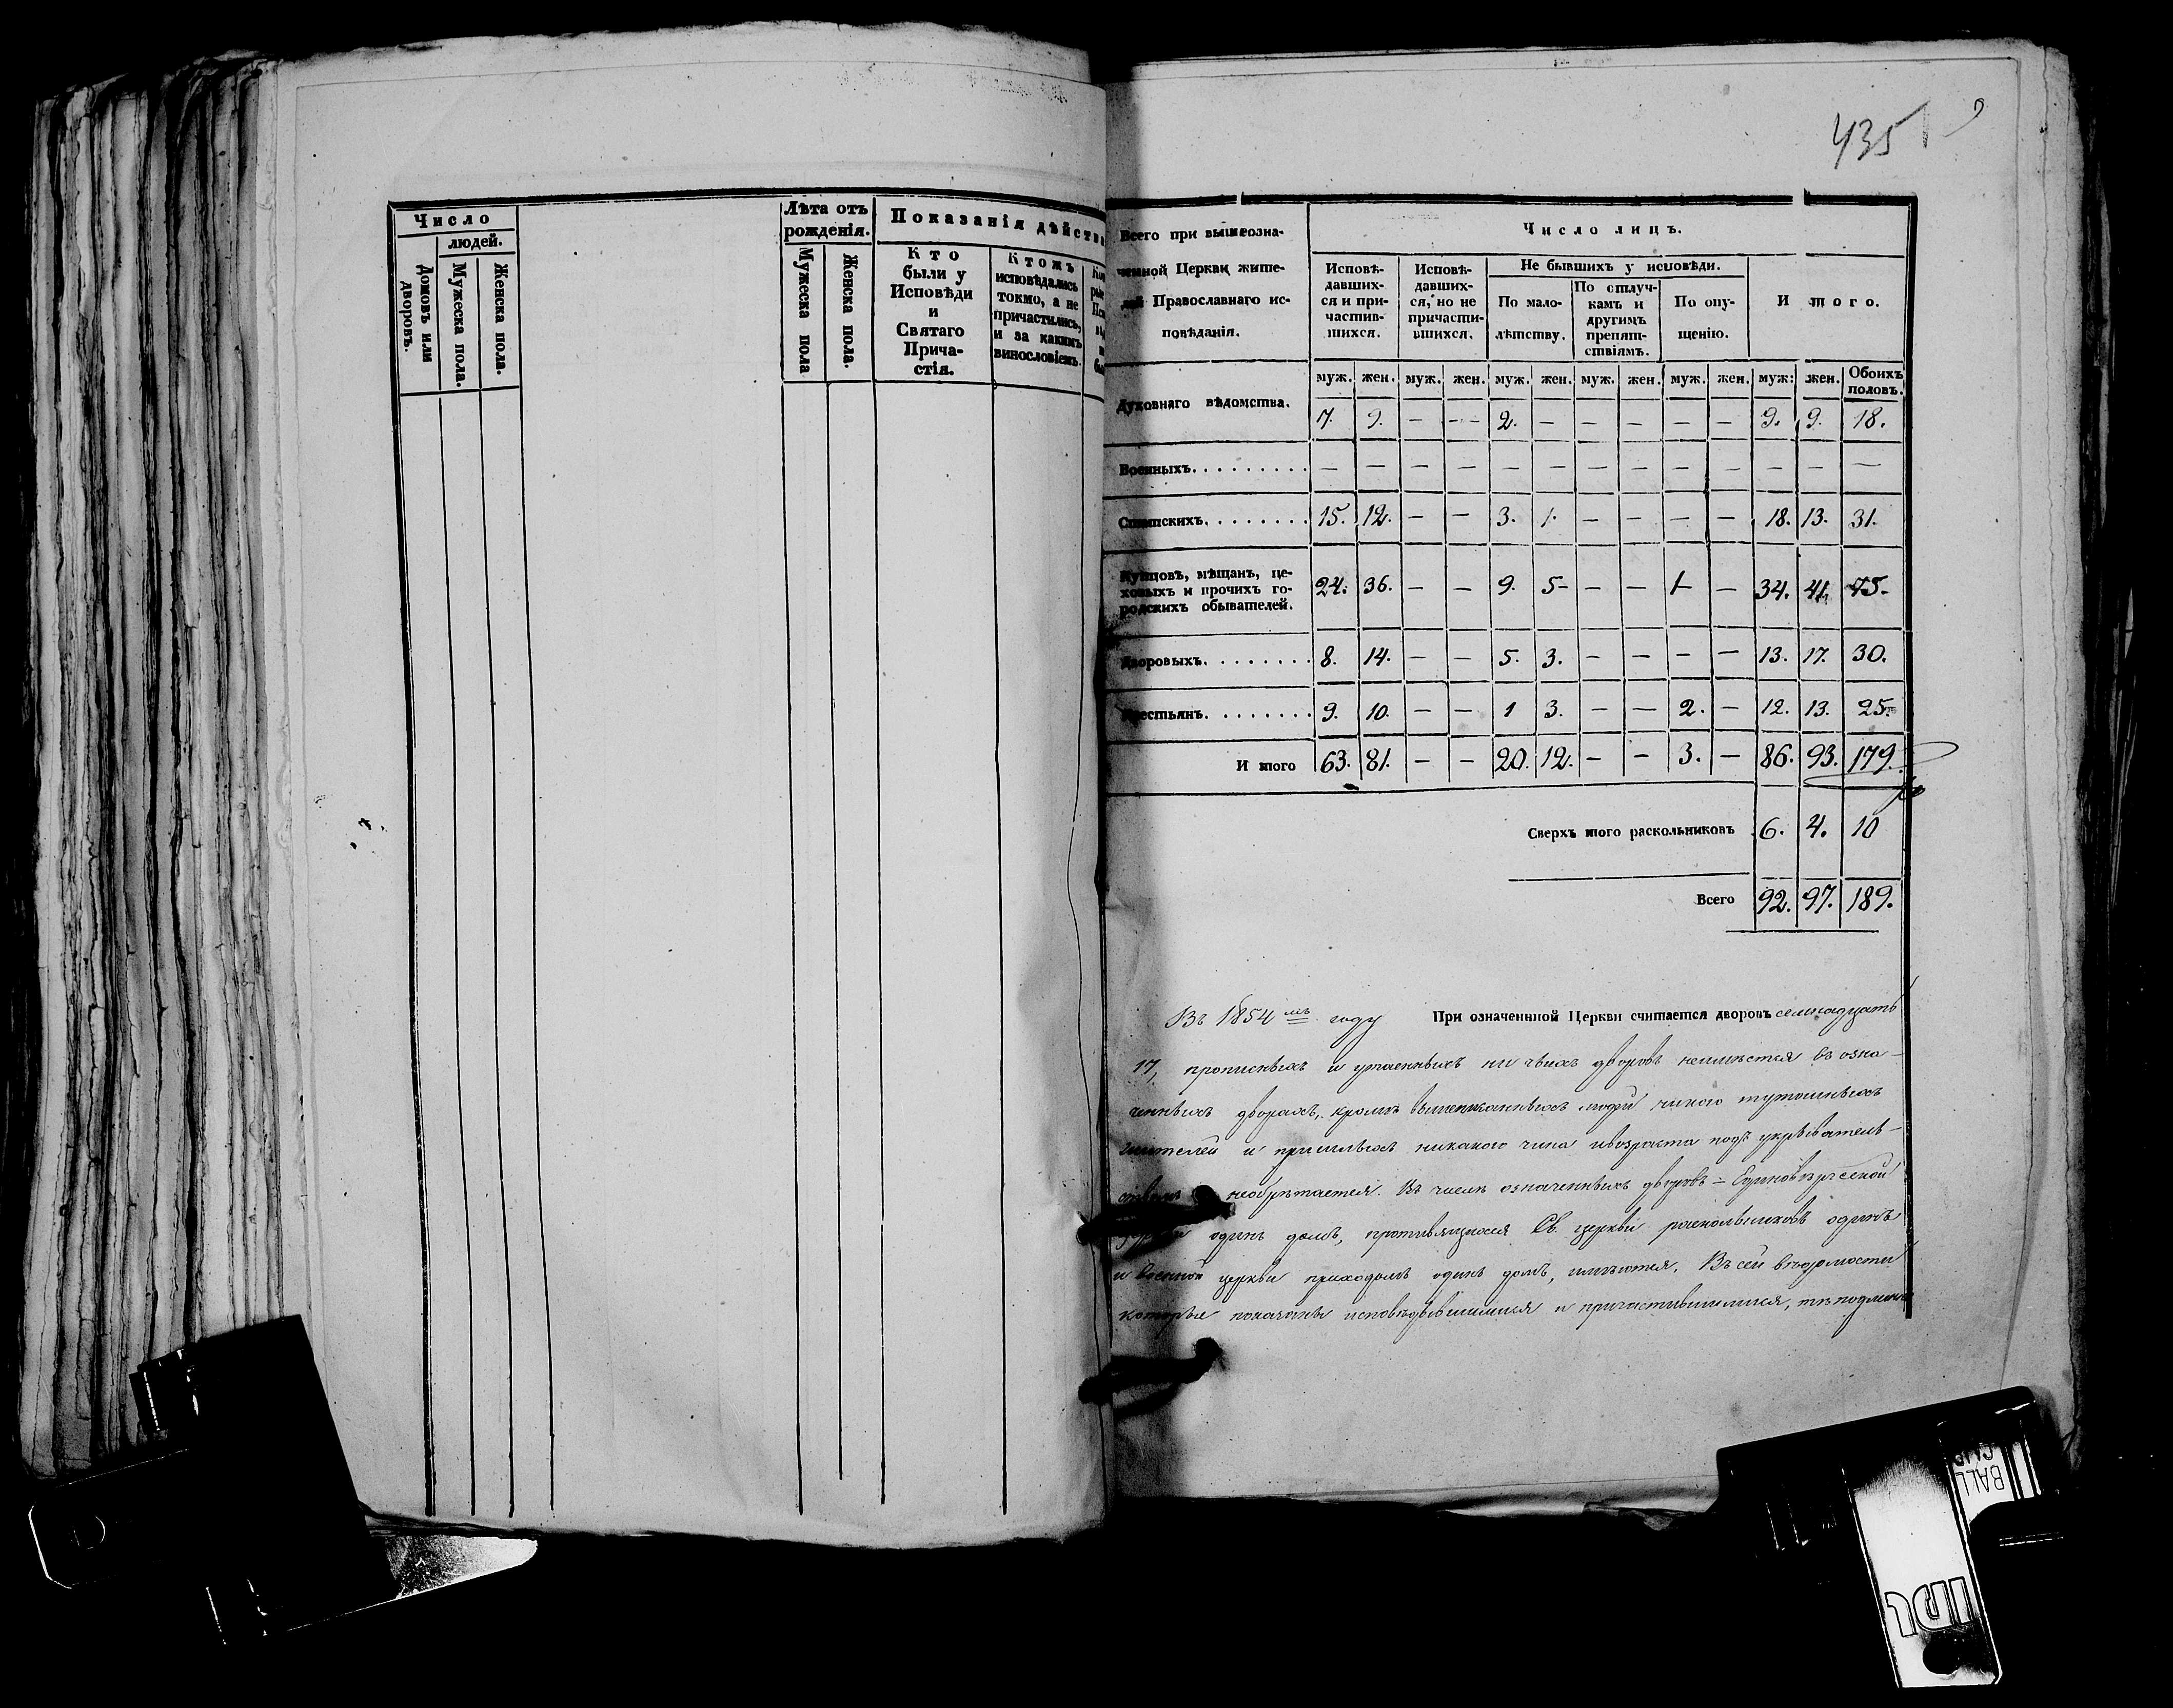 435
Число
людей.
Домовъ или дворовъ.
Мужеска пола.
Женска пола.
Лѣта отъ рожденія.
Мужеска пола
Женска пола.
Показанія дѣйства
Кто
были у
Исповѣди
и
Святаго
Прича-
стія.
Ктожъ
исповѣдались
токмо, а не
причастились,
и за какимъ
винословіемъ.
Всего при вышеозна-
ченной Церкви жите-
лей Православнаго ис-
повѣданія.
Число лицъ.
Исповѣ-
давших-
ся и при-
частив-
шихся.
Исповѣ-
давших-
ся, но не
причасти-
вшихся.
Не бывшихъ у исповѣди.
По мало-
лѣтству.
По отлуч-
камъ и
другимъ
препят-
ствіямъ.
По опу-
щенію.
И того.
муж. жен. муж. жен. муж. жен. муж. жен. муж. жен. муж: жен. Обоихъ половъ.
Духовнаго вѣдомства. 7. 9. — — 2. — — — — — 9. 9. 18.
Военныхъ. — — — — — — — — — — — — —
Статскихъ. 15. 12. — — 3. 1. — — — — 18. 13. 31.
Купцовъ, мѣщанъ, це-
ховыхъ и прочихъ го-
родскихъ обывателей. 24. 36. — — 9. 5 — — 1 — 34. 41. 75.
Дворовыхъ. 8. 14. — — 5. 3. — — — — 13. 17. 30.
Крестьянъ. 9. 10. — — 1 3. — — 2. — 12. 13. 25.
И того 63. 81. — — 20. 12. — — 3. — 86. 93. 179.
Сверхъ того раскольниковъ 6. 4. 10
Всего 92. 97. 189.
Въ 1854мъ году При означенной Церкви считается дворовъ семнадцать
17, прописныхъ и утаенныхъ ни чьихъ дворовъ неимѣется въ озна-
ченныхъ дворахъ, кромѣ вышеписанныхъ людей никого тутошныхъ
жителей и пришлыхъ никакого чина ивозраста подъ укрывательст-
необрѣтается. Въ числѣ означенныхъ дворовъ – Единовѣрческой
одинъ домъ, противящихся Св. церкви раскольниковъ одинъ
и военной церкви приходомъ одинъ домъ, имѣются. Въ сей вѣдомости
которые показаны исповѣдывавшимися и причастившимися, тѣ подлинно
BALL